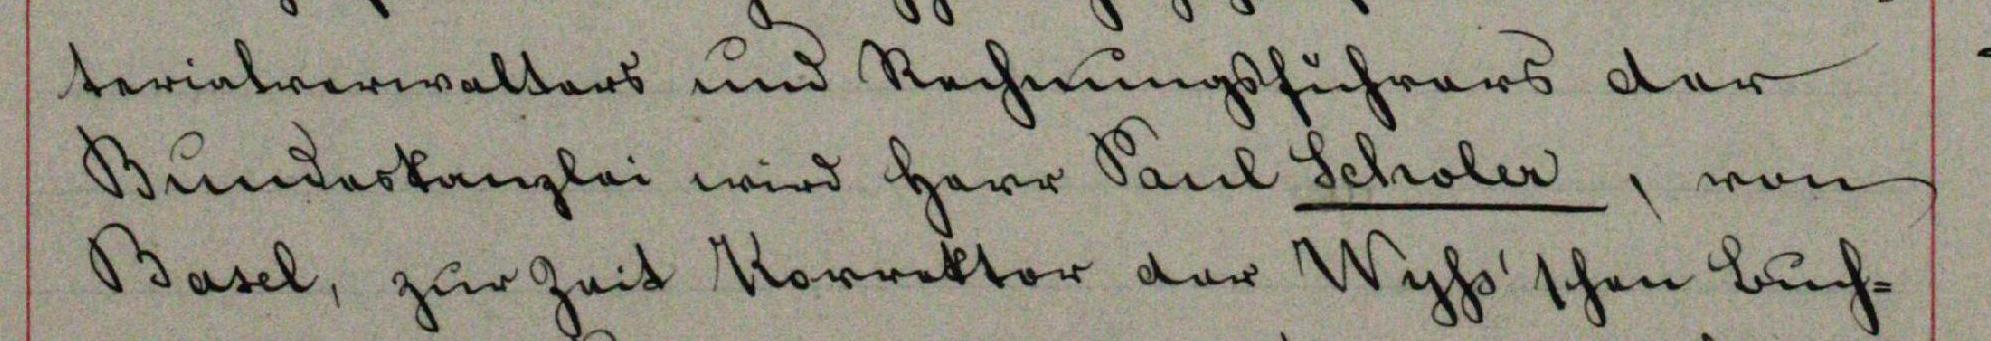 terialverwalters und Rechnungsführers der
Bundeskanzlei wird Herr Paul Scholer, von
Basel, zur Zeit Korrektor der Wyß'schen Buch=